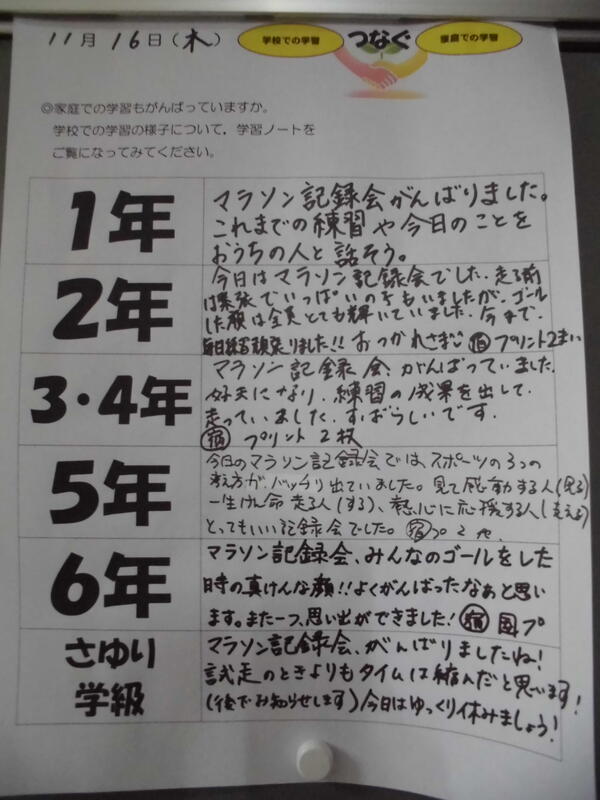 11月16日(木)
学校での学習
つなぐ
家庭での学習
◎家庭での学習もがんばっていますか。
学校での学習の様子について，学習ノートを
ご覧になってみてください。
1年
マラソン記録会がんばりました。
これまでの練習や今日のことを
おうちの人と話そう。
2年
今日はマラソン記録会でした。走る前
は緊張でいっぱいの子もいましたが、ゴール
した顔は全員とても輝いていました。今まで、
毎日練習頑張りました!!おつかれさま 宿プリント2まい
3・4年
マラソン記録会、がんばっていました。
好天になり、練習の成果を出して、
走っていました。すばらしいです。
宿 プリント 2枚
5年
今日のマラソン記録会では、スポーツの3つの
考え方が、バッチリ出ていました。見て感動する人(見る)
一生けん命走る人(する)、熱心に応援する人(支える)
とってもいい記録会でした。宿プ2
6年
マラソン記録会、みんなのゴールをした
時の真けんな顔!!よくがんばったなぁと思い
ます。また一つ、思い出ができました! 宿 国プ
さゆり
学級
マラソン記録会、がんばりましたね!
試走のときよりもタイムは縮んだと思います!
(後でお知らせします)今日はゆっくり休みましょう!